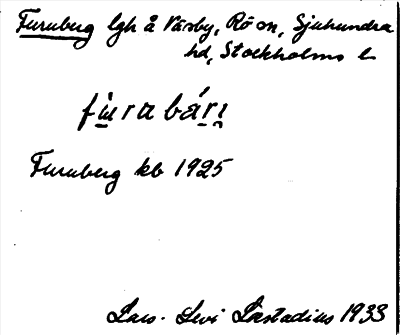 Furuberg lgh å Väsby, Rö sn, Sjuhundra
hd, Stockholms l
fu̇rabári
Furuberg kb 1925
Lars-Levi Læstadius 1933